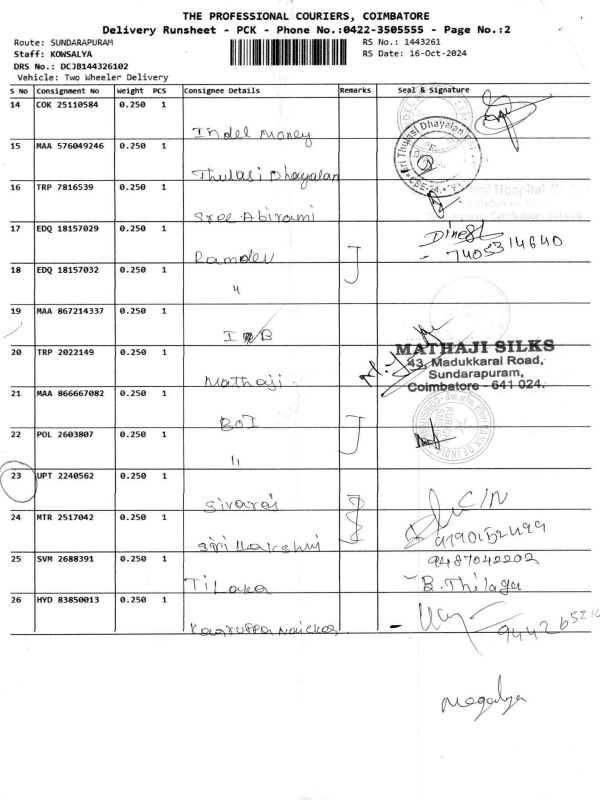 THE PROFESSIONAL COURIERS, COIMBATORE
Delivery Runsheet - PCK - Phone No.:0422-3505555 - Page No.:2
Route: SUNDARAPURAM
RS No.: 1443261
Staff: KOWSALYA
RS Date: 16-Oct-2024
DRS No.: DCJB144326102
Vehicle: Two Wheeler Delivery
S No Consignment No Weight PCS Consignee Details Remarks Seal & Signature
14 COK 25110584 0.250 1
Indel Money
15 MAA 576049246 0.250 1
Thulasi Dhayalan
Sri Thulasi Dhayalan
16 TRP 7816539 0.250 1
Sree Abirami
Hospital
17 EDQ 18157029 0.250 1
Dinesh
Ramdev
7405314640
18 EDQ 18157032 0.250 1
"
19 MAA 867214337 0.250 1
IB
20 TRP 2022149 0.250 1
MATHAJI SILKS
43, Madukkarai Road,
Sundarapuram,
Coimbatore - 641 024.
Mathaji
21 MAA 866667082 0.250 1
BOI
22 POL 2603807 0.250 1
BANK OF INDIA
"
23 UPT 2240562 0.250 1
Sivaraj
C/N
24 MTR 2517042 0.250 1
Siri Lakshmi
25 SVM 2688391 0.250 1
9487042202
Tilaka
B. Thilaga
26 HYD 83850013 0.250 1
Karuppa Naicker